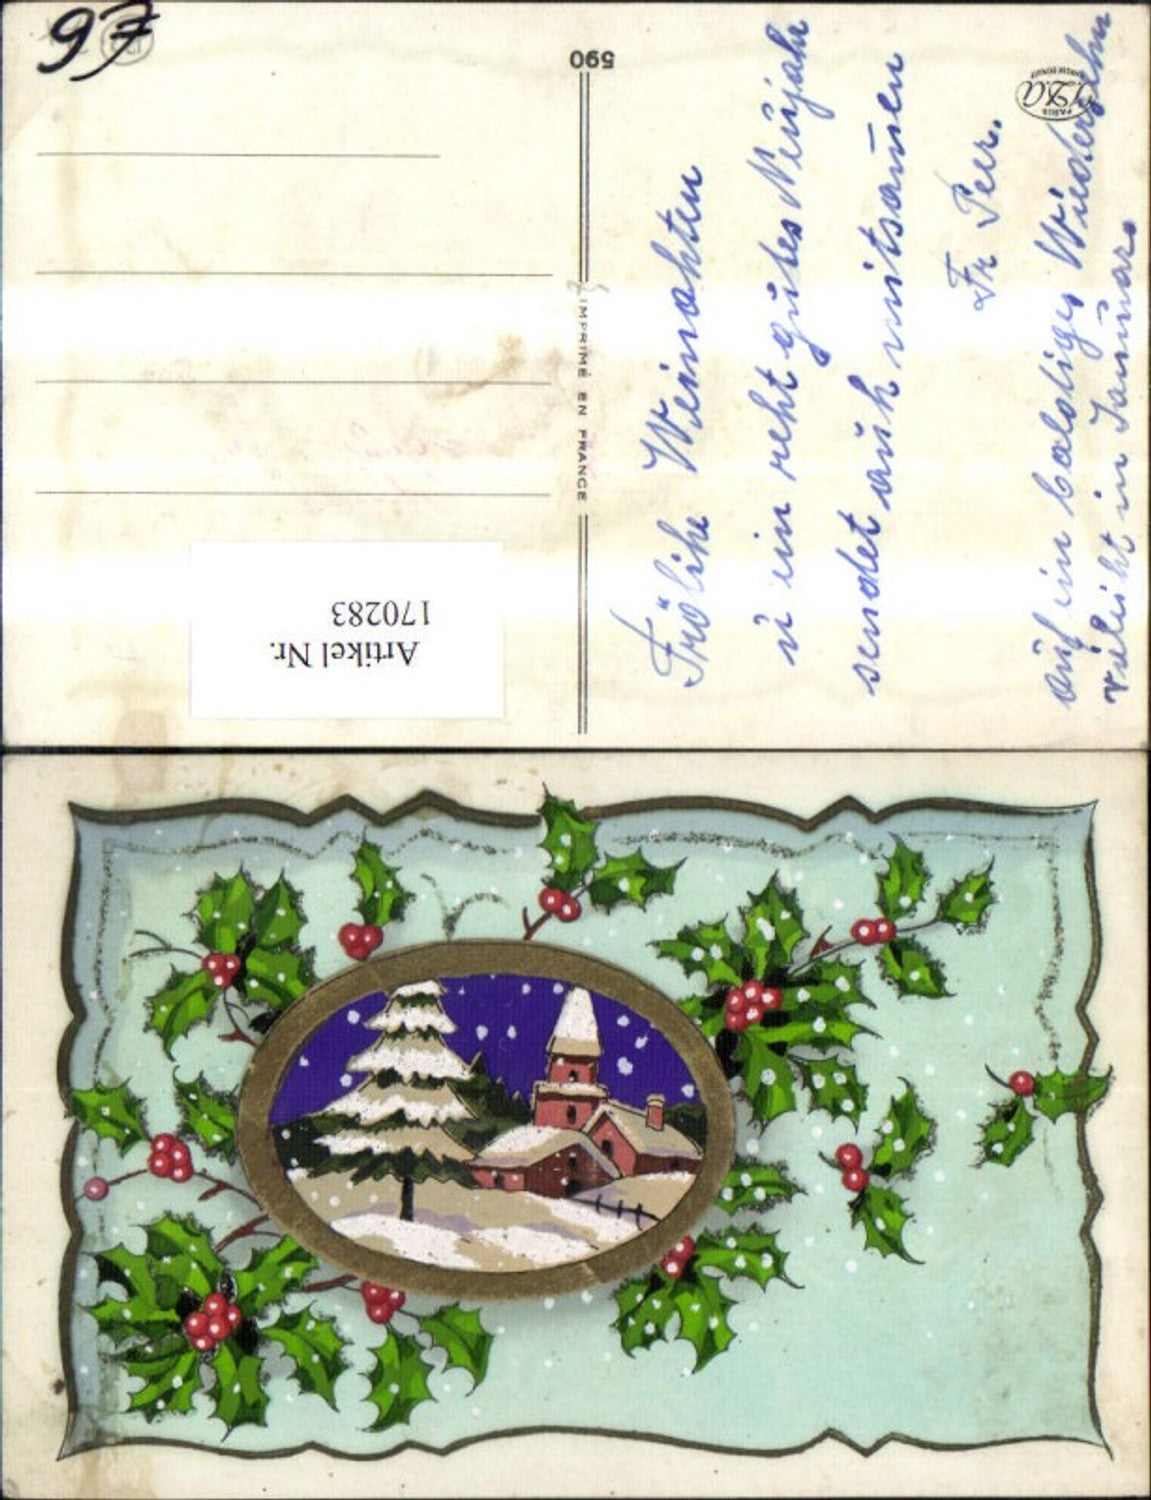 97
590
IMPRIMÉ EN FRANCE
Artikel Nr.
170283
Frölihe Weinahten
ü ein reht gütes Neüjahr
sendet aüih mitsamen
Fr Peer.
aüf ein baldiges Wiedersehn
vileiht in Janüar.
PARIS